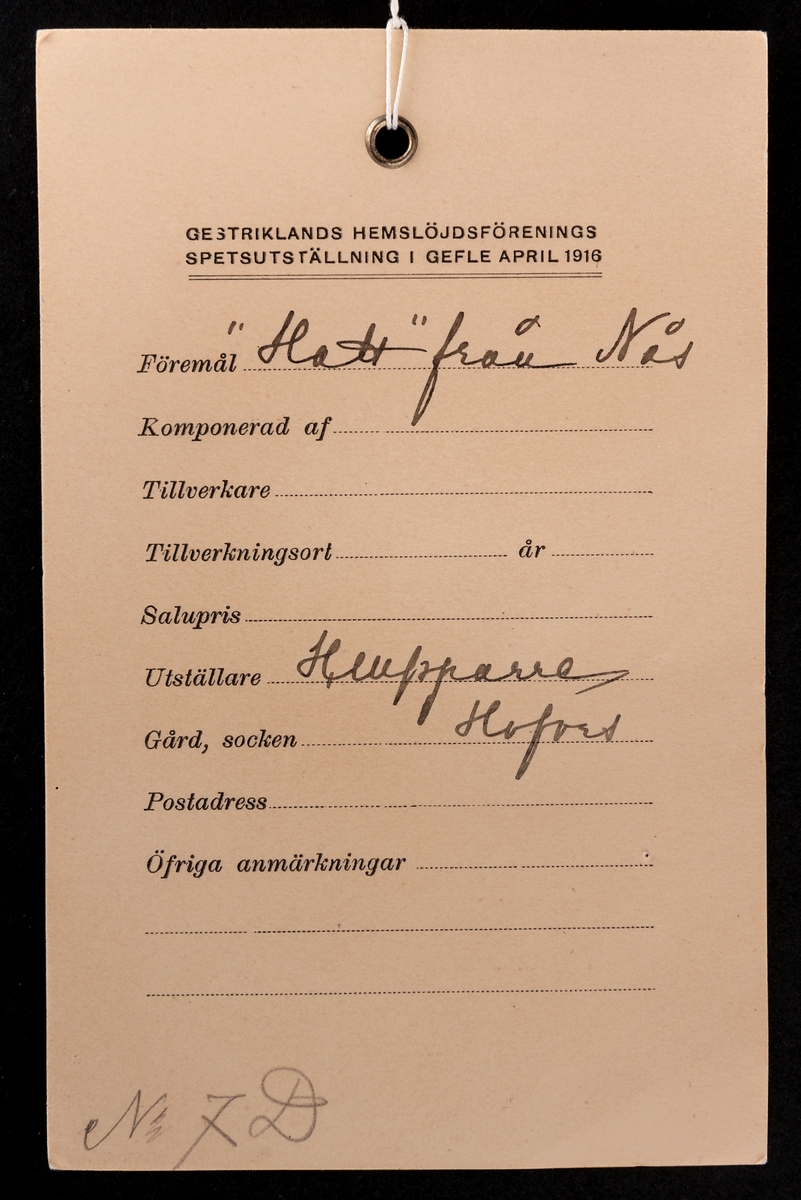 GESTRIKLANDS HEMSLÖJDSFÖRENINGS
SPETSUTSTÄLLNING I GEFLE APRIL 1916
Föremål "Hatt" från Nås
Komponerad af
Tillverkare
Tillverkningsort år
Salupris
Utställare
Gård, socken Hofors
Postadress
Öfriga anmärkningar
№ 7 D